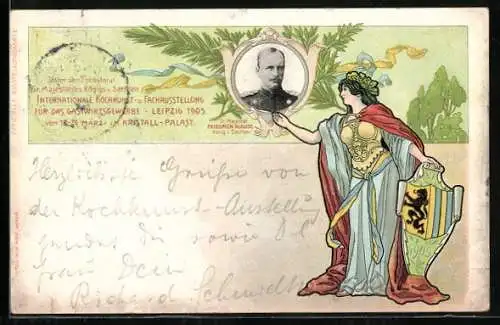 Unter dem Protektorat
Sr. Majestät des Königs v. Sachsen
INTERNATIONALE KOCHKUNST- U. FACHAUSSTELLUNG
FÜR DAS GASTWIRTSGEWERBE - LEIPZIG 1905
VOM 18.-24. MÄRZ - IM KRISTALL-PALAST.
FRIEDRICH AUGUST
König v. Sachsen
Herzlichste Grüsse von
der Kochkunst-Ausstellung
sendet dir sowie
Frau Dein
Richard Schmidt